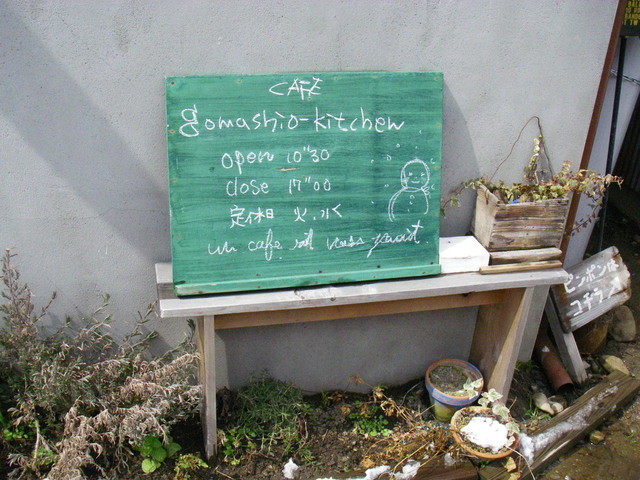 CAFE
gomashio-kitchen
open 10"30
close 17"00
定休日 火.水
un cafe s'il vous plait
ピンポンは
コチラ